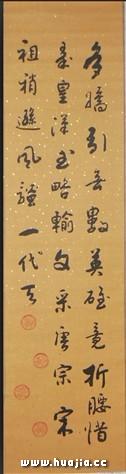 多嬌引無數英雄竟折腰惜
秦皇漢武略輸文采唐宗宋
祖稍遜風騷一代天
www.huajia.cc